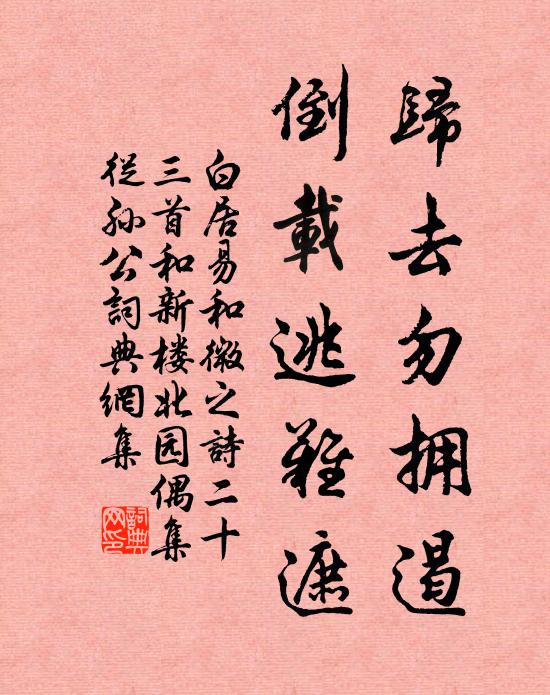 歸去勿拥遏
倒載逃難遮
白居易和微之詩二十
三首和新楼北园偶集
從孙公詞典網集
詞典網印